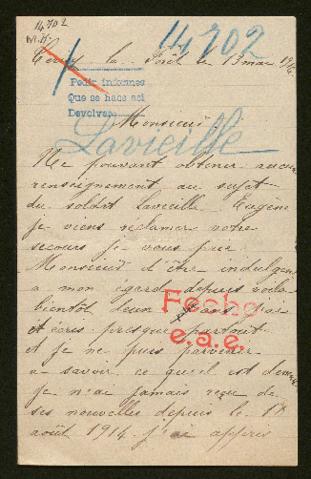 14702
14702
le 13 mai 1916
Pedir informes
Que se hace aci
Devolver
Monsieur
Lavieille
Ne pouvant obtenir aucun
renseignement au sujet
du soldat Lavieille Eugène
je viens réclamer votre
secours je vous prie
Monsieur d'être indulgent
a mon égard depuis voila
bientôt deux ans que
et écris presque partout
et je ne puis parvenir
a savoir ce qu'il est devenu
Fecho
e.a.e.
je n'ai jamais reçu de
ses nouvelles depuis le 17
août 1914. j'ai appris